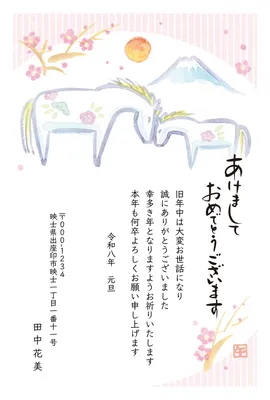 あけまして
おめでとうございます
旧年中は大変お世話になり
誠にありがとうございました
幸多き年となりますようお祈りいたします
本年も何卒よろしくお願い申し上げます
令和八年　元旦
〒000-1234
映士県出座印市映士一丁目一番十一号
田中花美